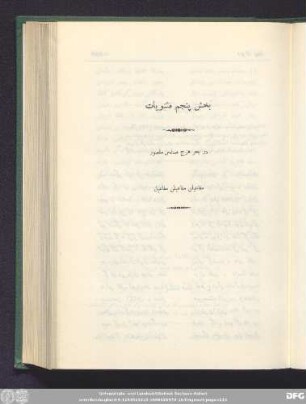 بخش پنجم مثنویات
در بحر هزج مسدس مقصور
مفاعیلن مفاعیلن مفاعیل
Universitäts- und Landesbibliothek Sachsen-Anhalt
DFG